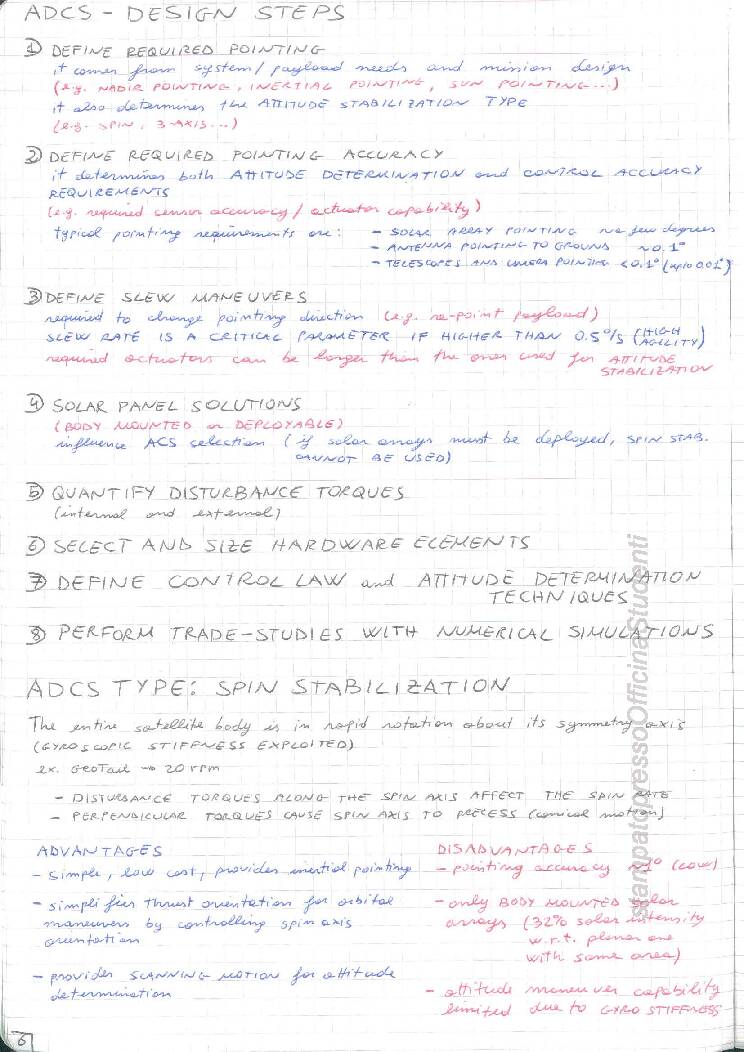 ADCS - DESIGN STEPS
1) DEFINE REQUIRED POINTING
it comes from system/payload needs and mission design
(e.g. NADIR POINTING, INERTIAL POINTING, SUN POINTING...)
it also determines the ATTITUDE STABILIZATION TYPE
(e.g. SPIN, 3-AXIS...)
2) DEFINE REQUIRED POINTING ACCURACY
it determines both ATTITUDE DETERMINATION and CONTROL ACCURACY
REQUIREMENTS
(e.g. required sensor accuracy / actuator capability)
typical pointing requirements are: - SOLAR ARRAY POINTING ~ few degrees
- ANTENNA POINTING TO GROUND ~0.1°
- TELESCOPES AND CAMERA POINTING <0.1° (up to 0.01°)
3) DEFINE SLEW MANEUVERS
required to change pointing direction (e.g. re-point payload)
SLEW RATE IS A CRITICAL PARAMETER IF HIGHER THAN 0.5°/s (HIGH
AGILITY)
required actuators can be larger than the ones used for ATTITUDE
STABILIZATION
4) SOLAR PANEL SOLUTIONS
(BODY MOUNTED or DEPLOYABLE)
influence ACS selection (if solar arrays must be deployed, SPIN STAB.
CANNOT BE USED)
5) QUANTIFY DISTURBANCE TORQUES
(internal and external)
6) SELECT AND SIZE HARDWARE ELEMENTS
7) DEFINE CONTROL LAW and ATTITUDE DETERMINATION
TECHNIQUES
8) PERFORM TRADE-STUDIES WITH NUMERICAL SIMULATIONS
stampatopressoOfficinaStudenti
ADCS TYPE: SPIN STABILIZATION
The entire satellite body is in rapid rotation about its symmetry axis
(GYROSCOPIC STIFFNESS EXPLOITED)
ex. GEOTAIL → 20 rpm
- DISTURBANCE TORQUES ALONG THE SPIN AXIS AFFECT THE SPIN RATE
- PERPENDICULAR TORQUES CAUSE SPIN AXIS TO PRECESS (conical motion)
ADVANTAGES
- simple, low cost, provides inertial pointing
- simplifies thrust orientation for orbital
maneuvers by controlling spin axis
orientation
- provides SCANNING MOTION for attitude
determination
DISADVANTAGES
- pointing accuracy ~1° (low)
- only BODY MOUNTED solar
arrays (32% solar intensity
w.r.t. planar one
with same area)
- attitude maneuver capability
limited due to GYRO STIFFNESS
6